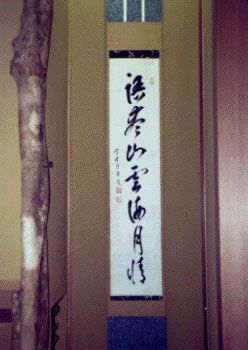 語盡山雲海月情